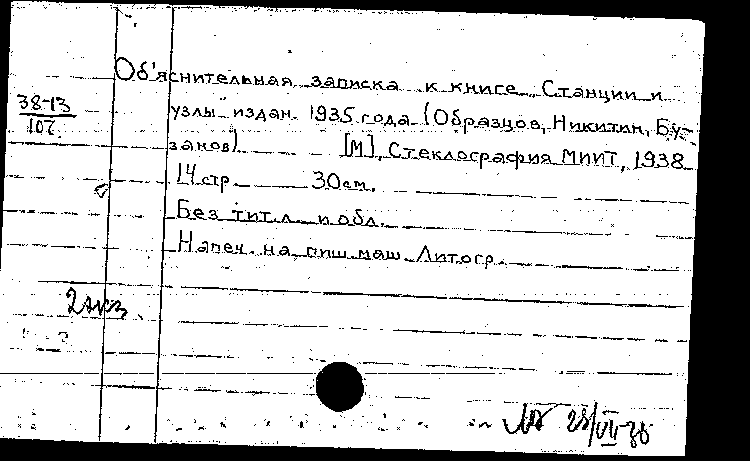 Об'яснительная записка к книге „Станции и
38-13
107.
узлы" издан. 1935 года (Образцов, Никитин, Бу-
занов)   [М], Стеклография МИИТ, 1938
14 стр.   30 см.
Без тит. л. и обл.
Напеч. на пиш. маш. Литогр.
2 экз.